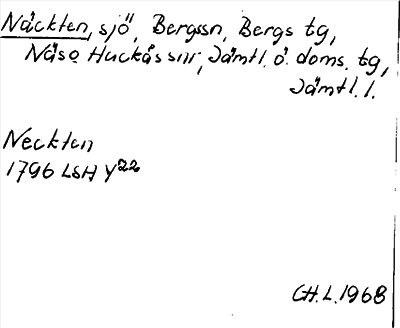 Näckten, sjö, Bergssn, Bergs tg,
Näso Huckås snr, Jämtl. ö. doms. tg,
Jämtl. l.
Neckten
1796 LSH Y22
CH.L.1968